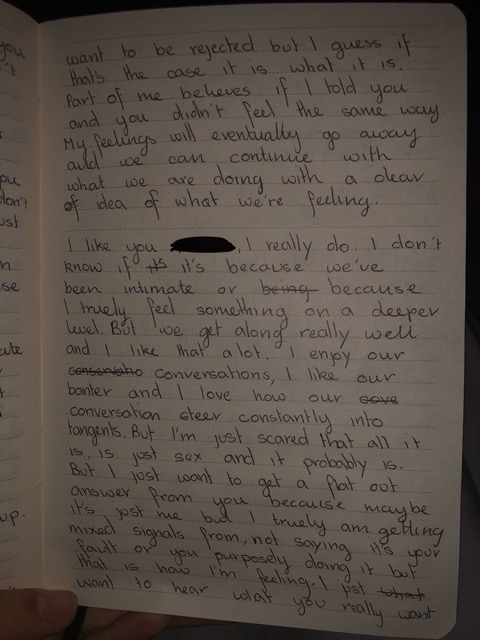 want to be rejected but I guess if
that's the case it is what it is.
Part of me believes if I told you
and you didn't feel the same way.
My feelings will eventually go away
and we can continue with
what we are doing with a clear
of idea of what we're feeling.
I like you, I really do. I don't
know if it's it's because we've
been intimate or being because
I truely feel something on a deeper
level. But we get along really well
and I like that a lot. I enjoy our
conservatio conversations, I like our
banter and I love how our cove
conversation steer constantly into
tangents. But I'm just scared that all it
is, is just sex and it probably is.
But I just want to get a flat out
answer from you because maybe
it's just me but I truely am getting
mixed signals from, not saying it's your
fault or you purposely doing it but
that is how I'm feeling. I jst what
want to hear what you really want
you
't
ou
don't
ust
n
se
ute
t
up.